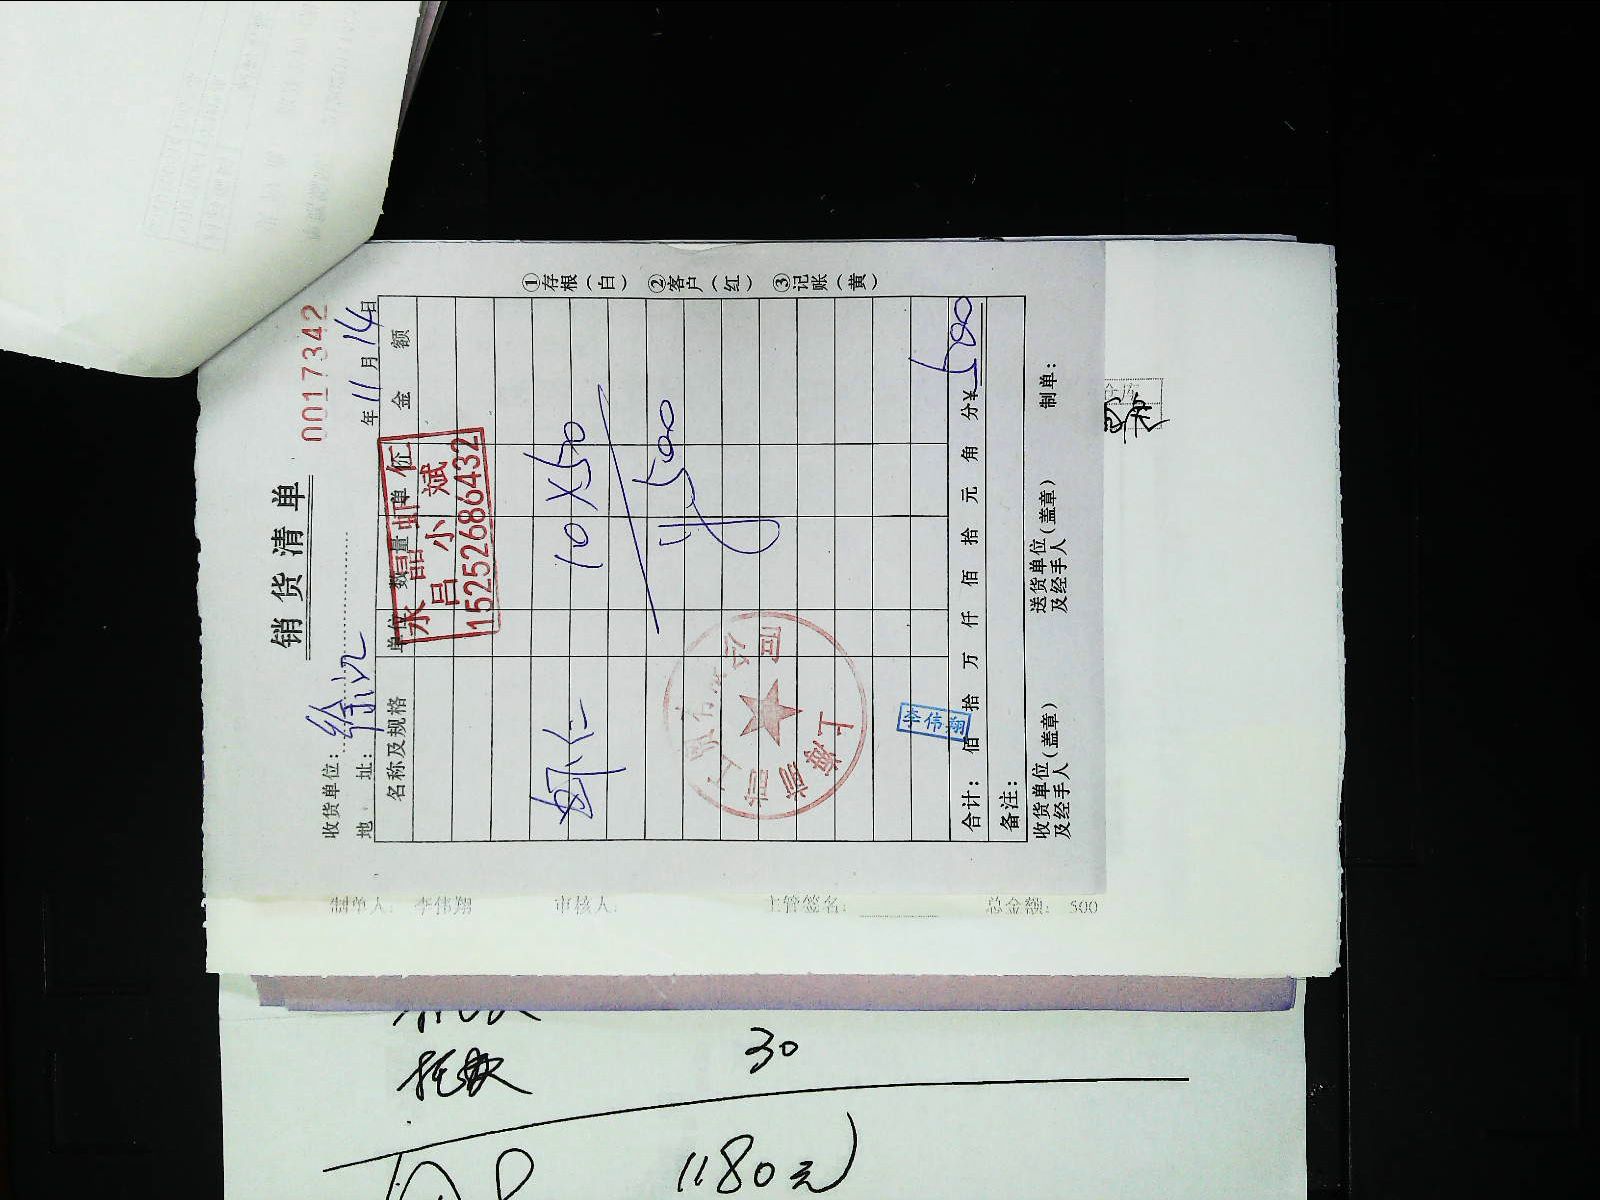 销货清单
0017342
收货单位：徐记
年11月14日
地 址：
永磊虾仁
吕小斌
15252686432
名称及规格 单位 数量 单价 金额
虾仁 10×50
500
合计： 佰 拾 万 仟 佰 拾 元 角 分 ¥500
李伟翔
备注：
收货单位（盖章）
及经手人
送货单位（盖章）
及经手人
制单：
①存根（白） ②客户（红） ③记账（黄）
制单人： 李伟翔 审核人： 主管签名： 总金额： 500
30
1180元